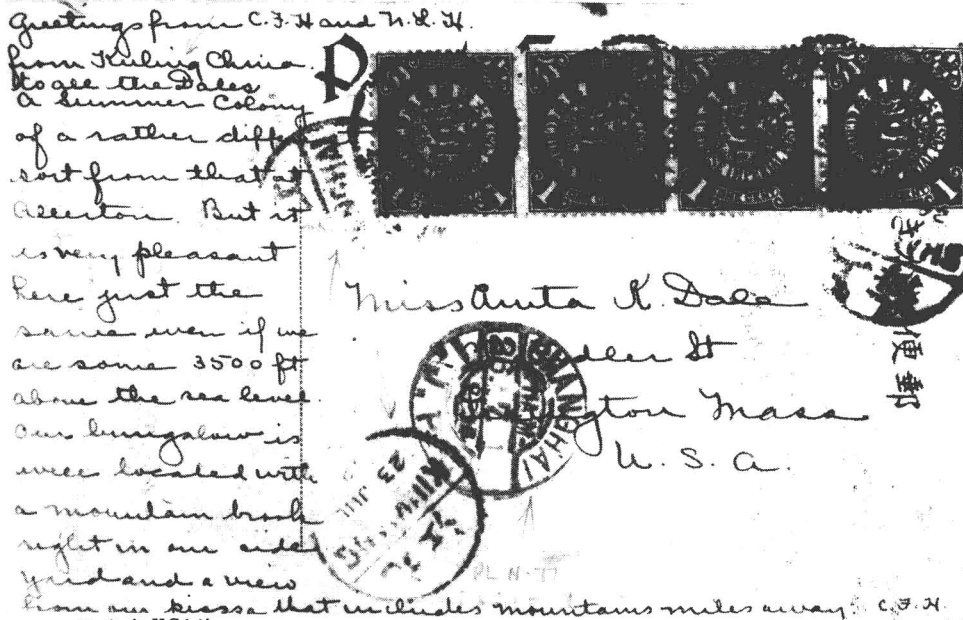 Greetings from C.F.H and N.L.H.
from Kuling China.
to all the Dales
A Summer Colony
of a rather diffe
sort from that at
Allerton. But it
is very pleasant
here just the
same even if we
are some 3500 ft
above the sea level.
Our bungalow is
well located with
a mountain brook
right in our side
yard and a view
from our piazza that includes mountains miles away. C.F.H.
Miss Anita K. Dale
dler St
ngton Mass
U.S.A.
SHANGHAI
23 JUL
九江
郵便